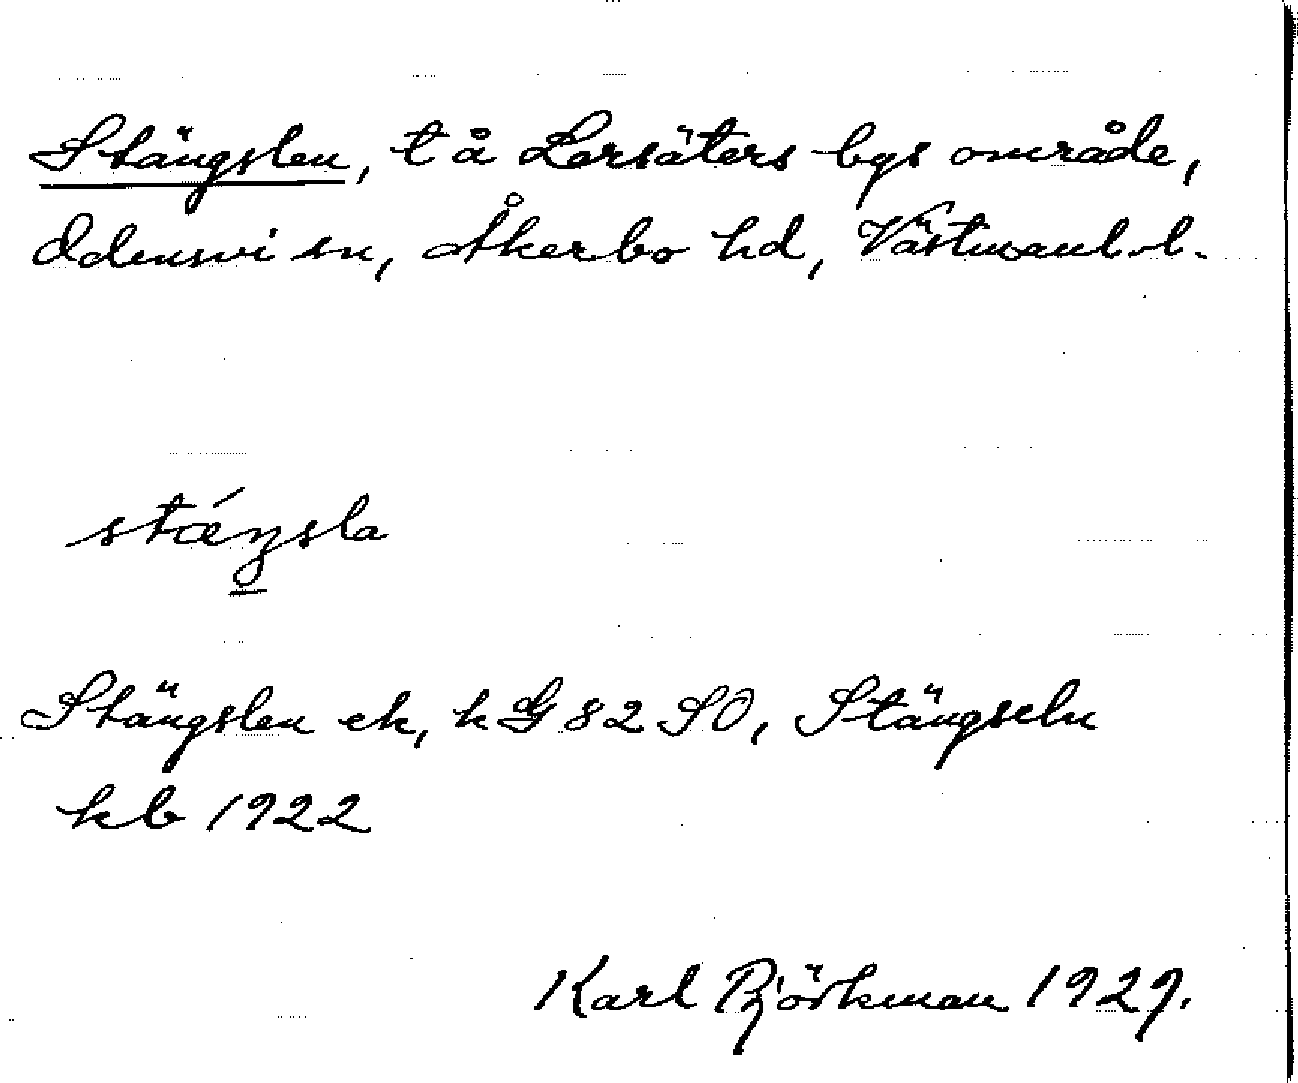 Stängslen, t å Lorsäters bys område,
Odensvi sn, Åkerbo hd, Västmanl. l.
stǽŋsla
Stängslen ek, k G 82 SO, Stängseln
kb 1922
Karl Björkman 1929.